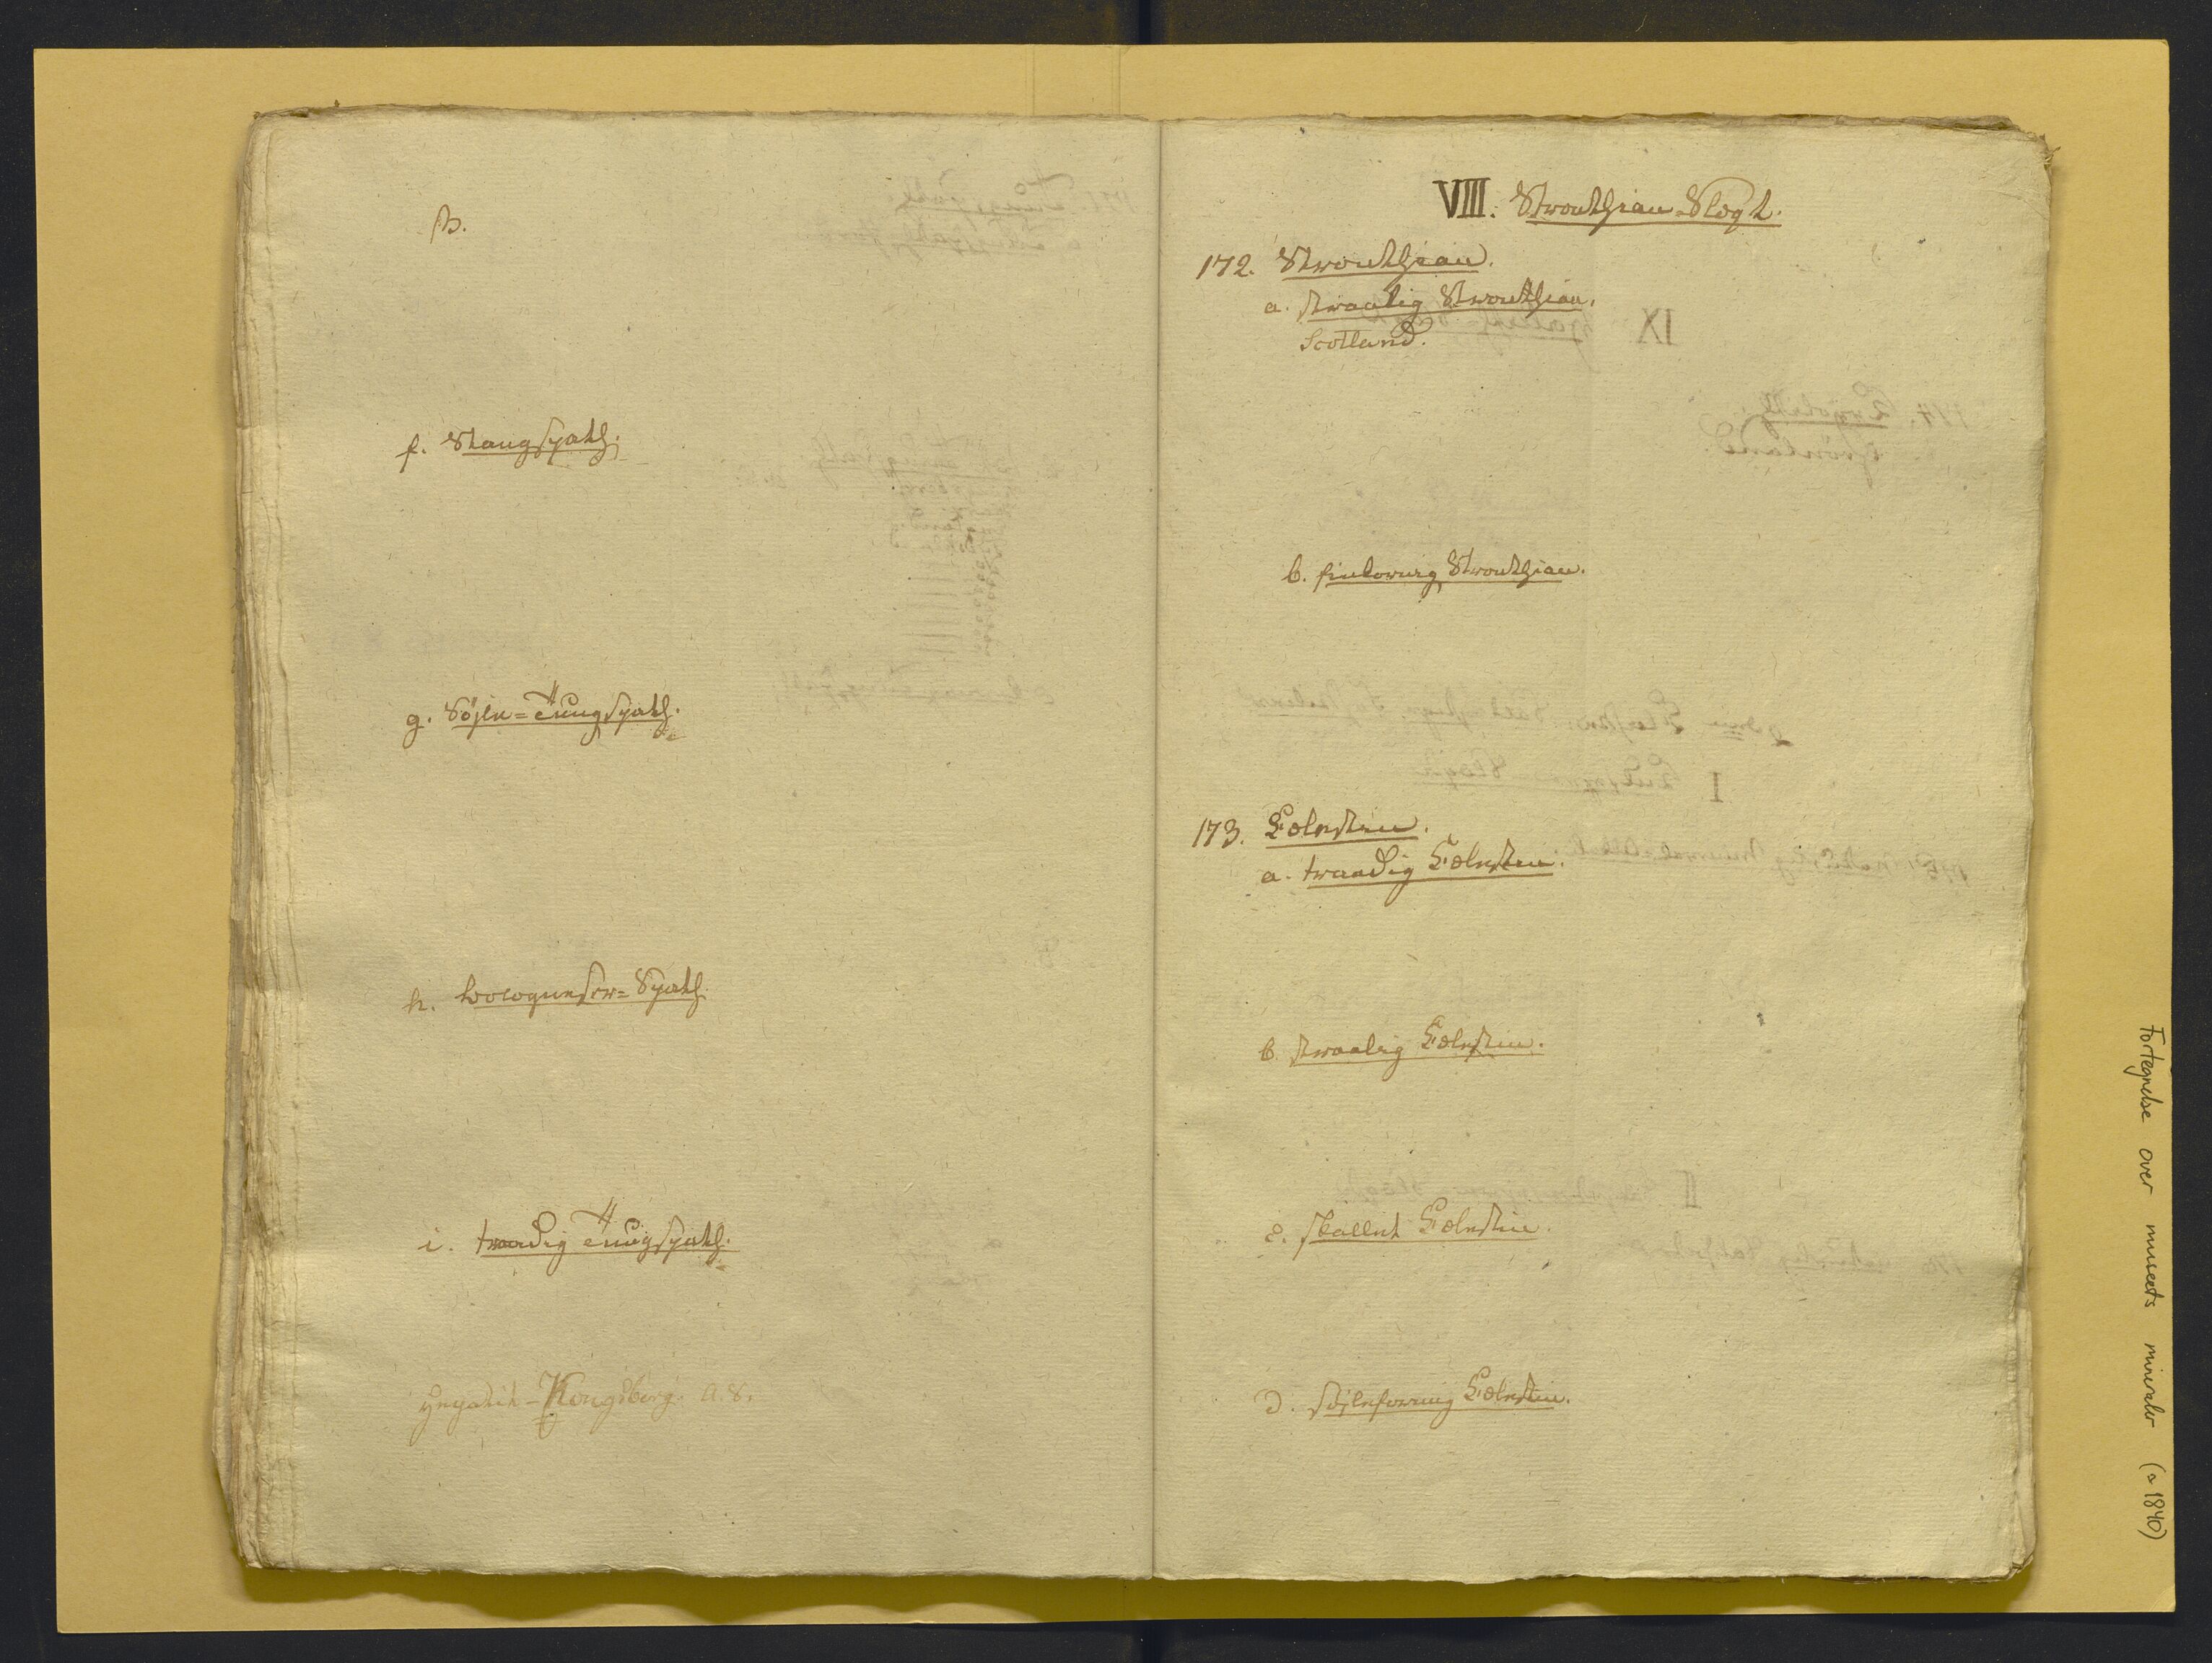 β.
f. Stangspath.
g. Söjle=Tungspath.
h. Bologneser=Spath.
i. traadig Tungspath.
Kongsberg. a. 8.
VIII. Stronthian-Slægt.
172. Stronthian.
a. straalig Stronthian.
Scotland.
b. Stronthian.
173. Cölestin.
a. traadig Cölestin.
b. straalig Cölestin.
c. skallet Cölestin.
d. söjleformig Cölestin.
Fortegnelse over museets mineraler (a 1840)